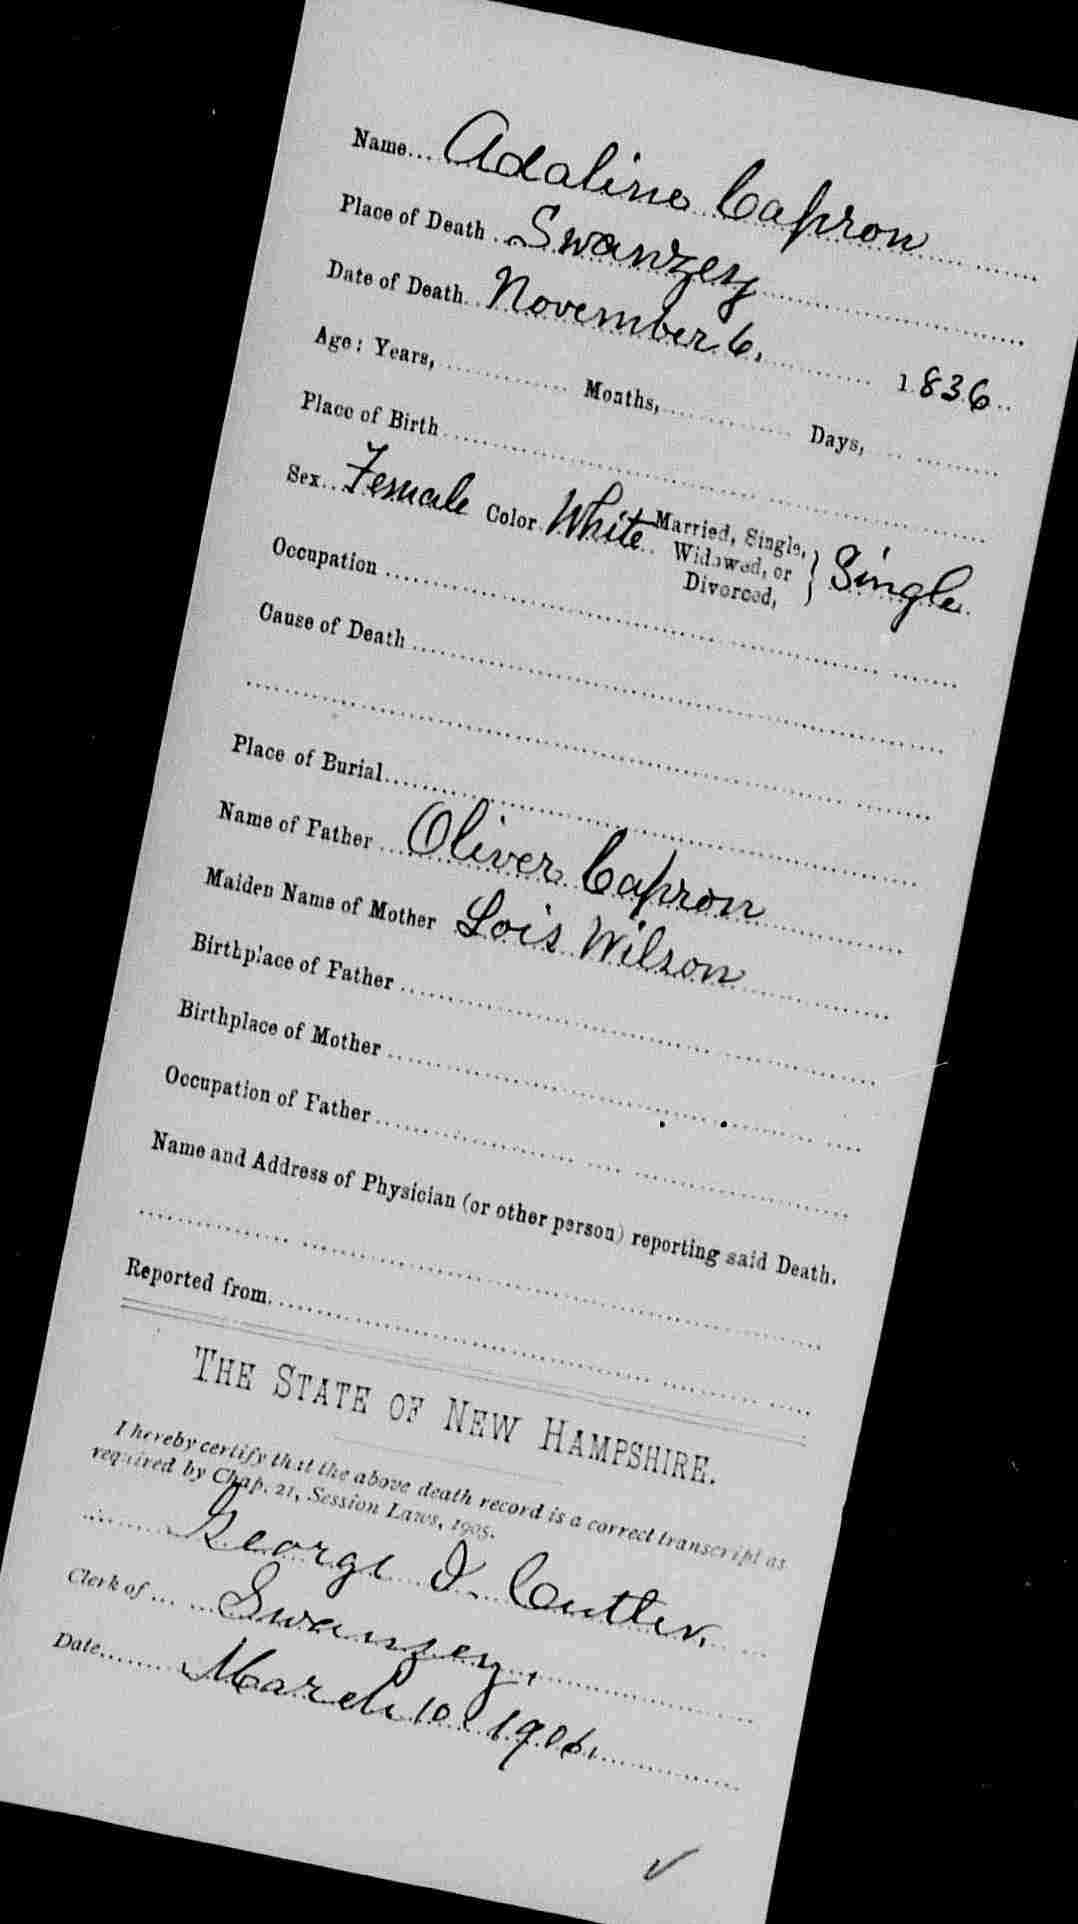 Name... Adaline Capron
Place of Death... Swanzey
Date of Death... November 6, 1836
Age: Years, ........ Months, ........ Days, ........
Place of Birth ........
Sex... Female Color White Married, Single, Widowed, or Divorced, } Single
Occupation ........
Cause of Death ........
Place of Burial ........
Name of Father... Oliver Capron
Maiden Name of Mother Lois Wilson
Birthplace of Father ........
Birthplace of Mother ........
Occupation of Father ........
Name and Address of Physician (or other person) reporting said Death.
Reported from ........
THE STATE OF NEW HAMPSHIRE.
I hereby certify that the above death record is a correct transcript as
required by Chap. 21, Session Laws, 1905.
George I. Cutler,
Clerk of ... Swanzey,
Date... March 10, 1906.